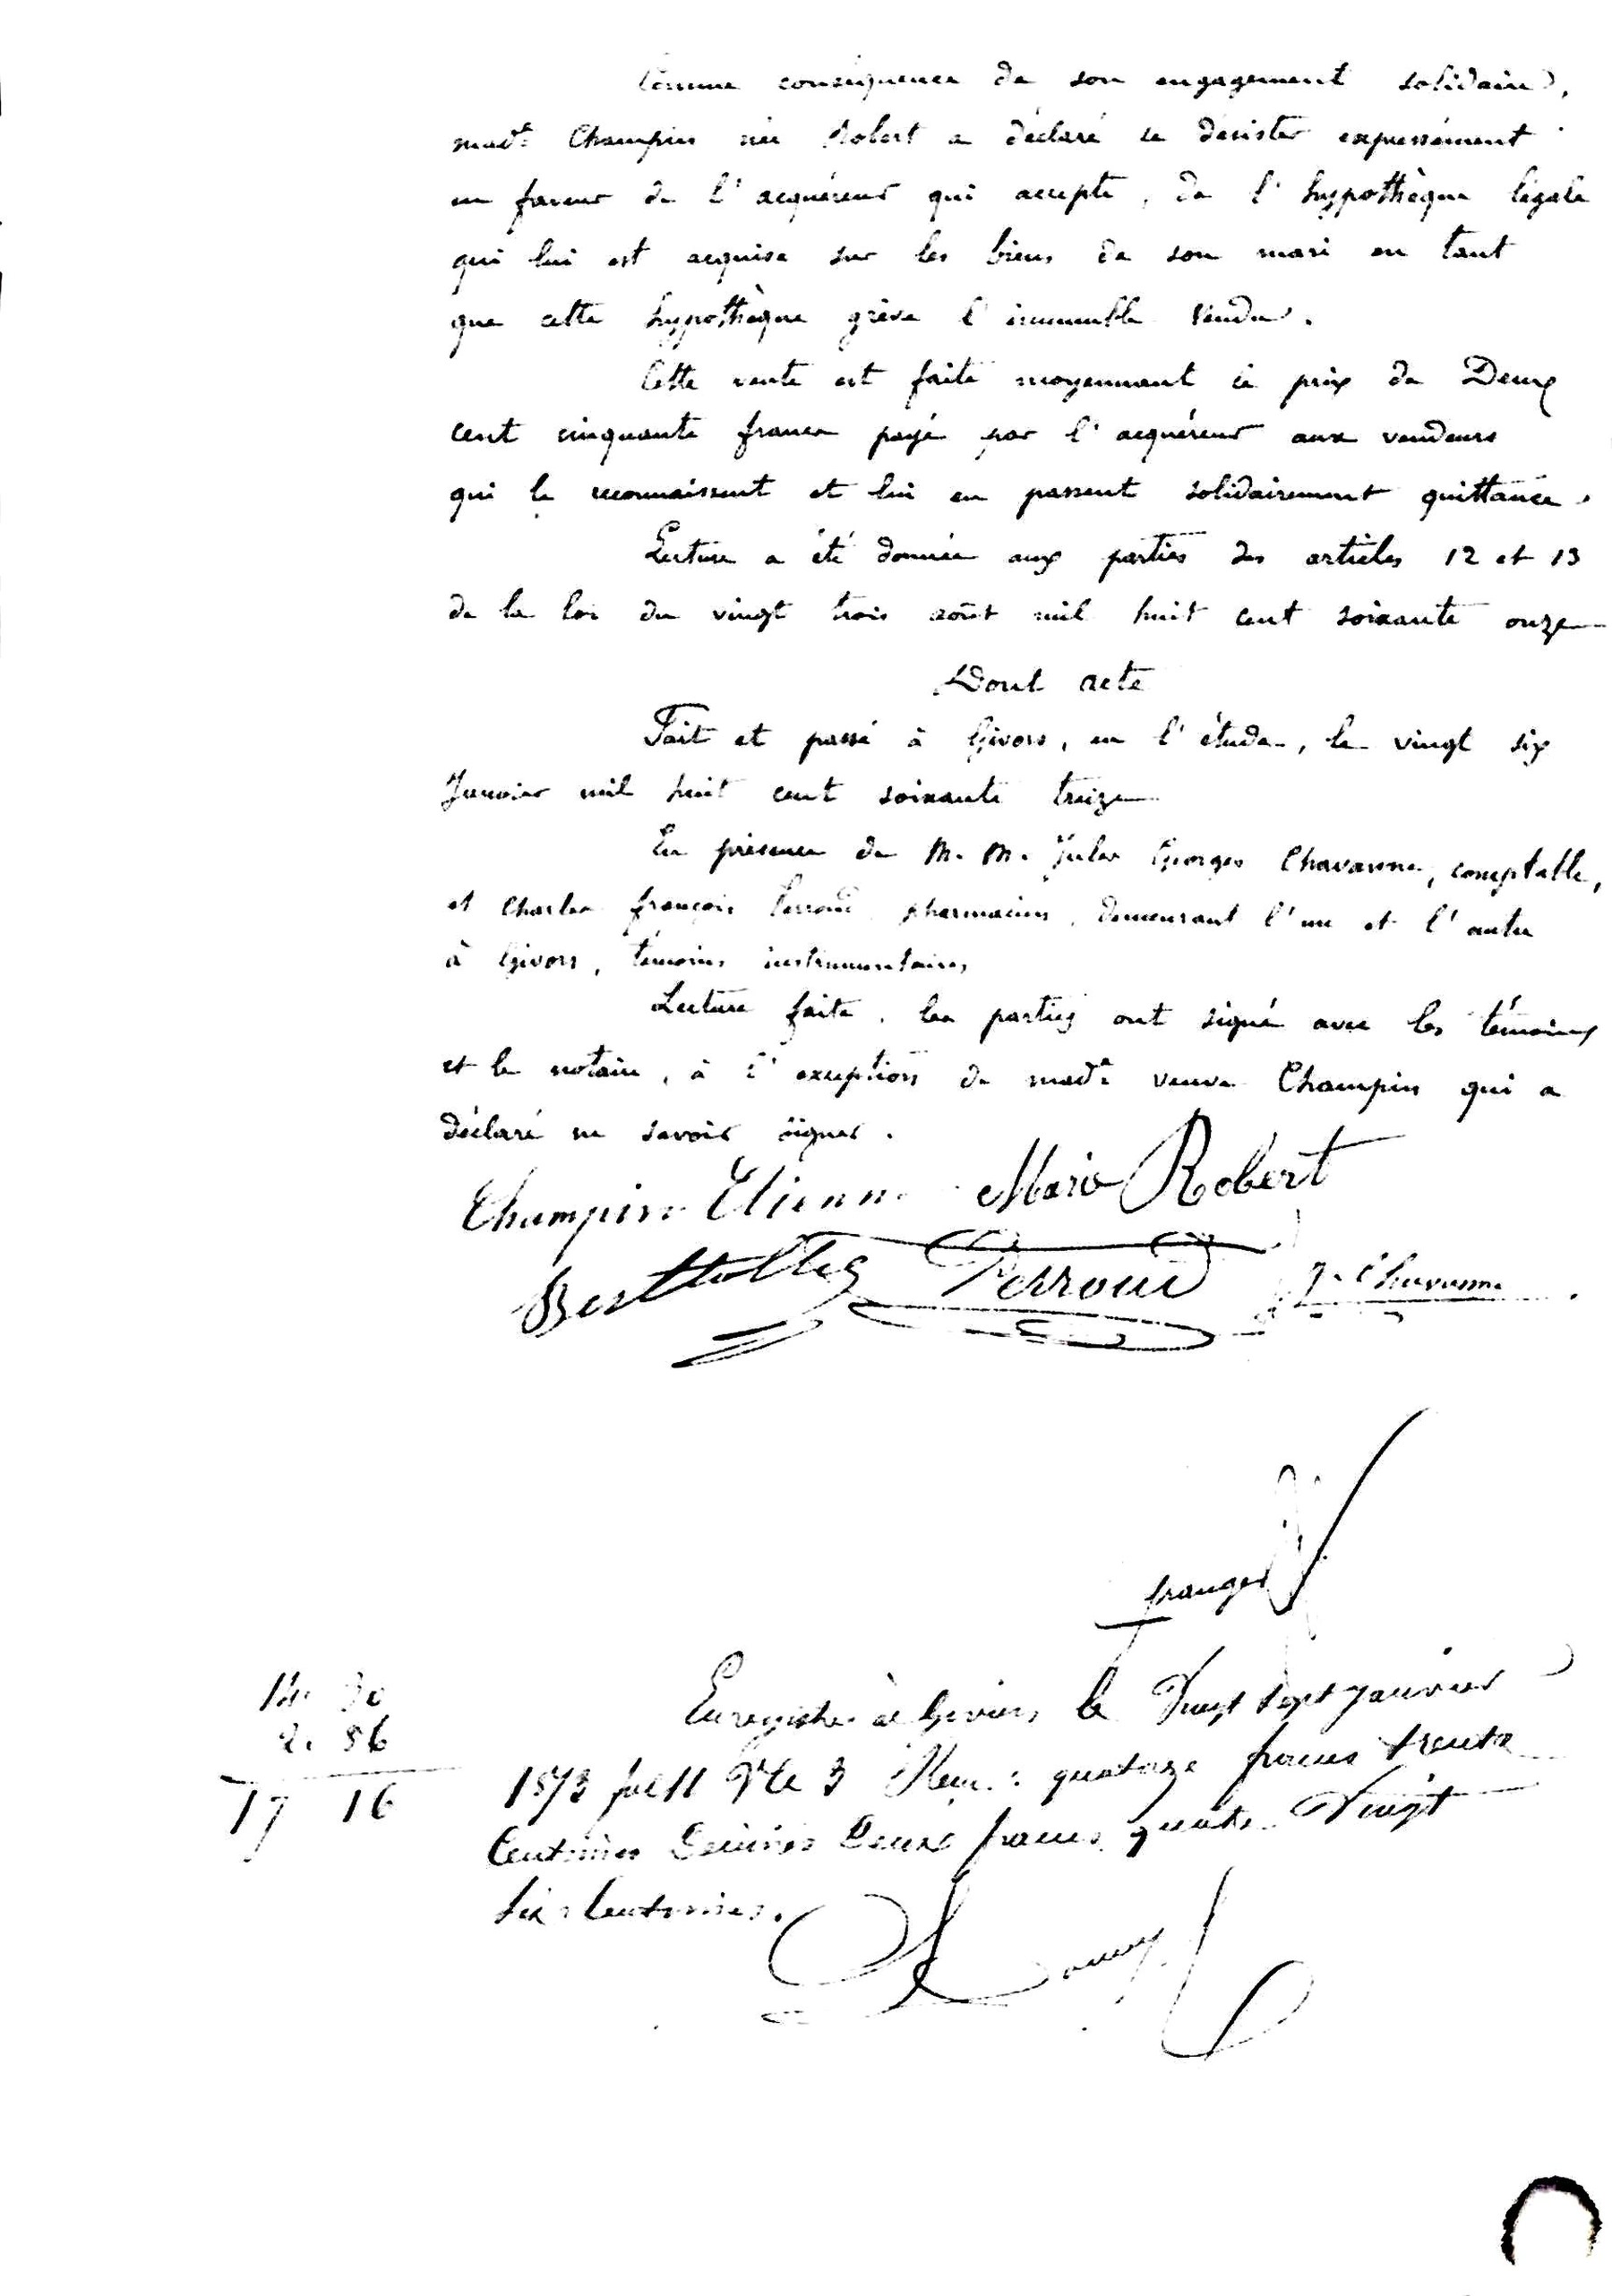 Comme conséquence de son engagement solidaire,
mad.e Champin née Robert a déclaré se désister expressément
en faveur de l'acquéreur qui accepte, de l'hypothèque légale
qui lui est acquise sur les biens de son mari en tant
que cette hypothèque grève l'immeuble vendu.
Cette vente est faite moyennant le prix de Deux
cent cinquante francs payé par l'acquéreur aux vendeurs
qui le reconnaissent et lui en passent solidairement quittance.
Lecture a été donnée aux parties des articles 12 et 13
de la loi du vingt trois août mil huit cent soixante onze
Dont acte
Fait et passé à Givors, en l'étude, le vingt six
Janvier mil huit cent soixante treize
En présence de M. M. Jules Georges Chavanne, comptable,
et Charles françois Perroud pharmacien, demeurant l'un et l'autre
à Givors, témoins instrumentaires
Lecture faite, les parties ont signé avec les témoins
et le notaire, à l'exception de mad.e veuve Champin qui a
déclaré ne savoir signer.
Champin Etienne Marie Robert
Perroud J. Chavanne
14. 30
2. 86
17 16
Enregistré à Givors, le Vingt Sept Janvier
1873 fol 11 Vte 3 Reçu : quatorze francs trente
Centimes Décimes Deux francs quatre Vingt
Six Centimes.